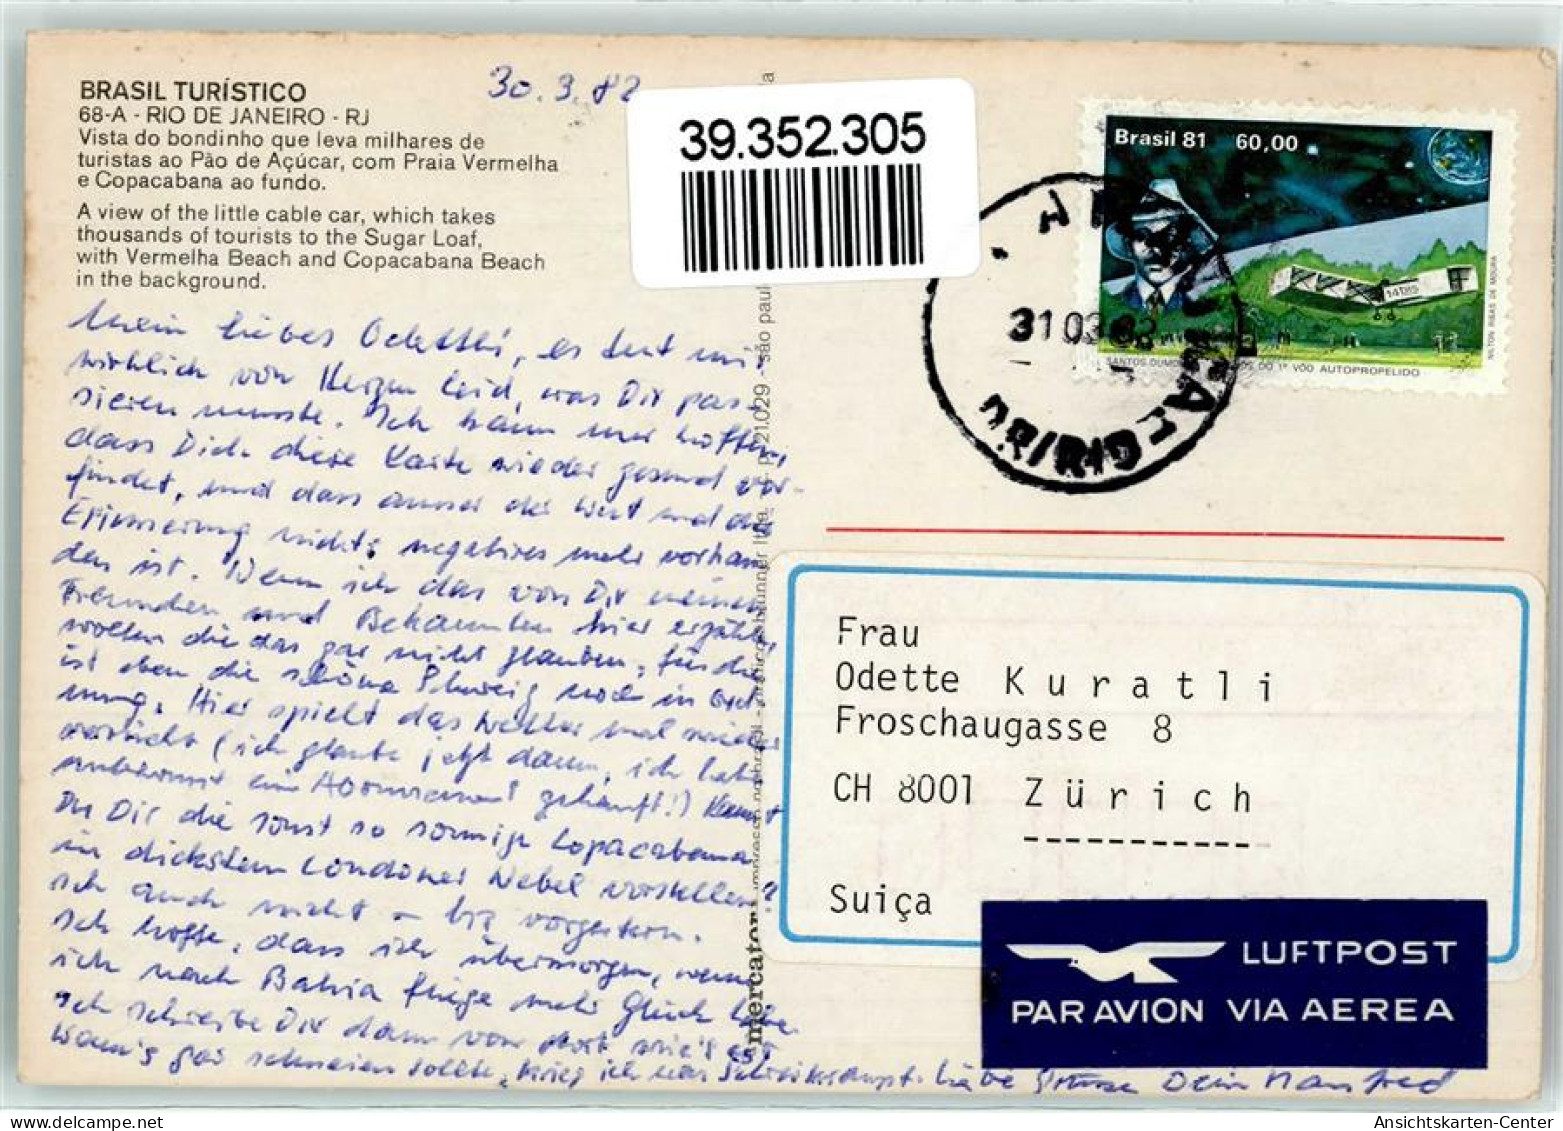 BRASIL TURÍSTICO
68-A - RIO DE JANEIRO - RJ
Vista do bondinho que leva milhares de
turistas ao Pão de Açúcar, com Praia Vermelha
e Copacabana ao fundo.
A view of the little cable car, which takes
thousands of tourists to the Sugar Loaf,
with Vermelha Beach and Copacabana Beach
in the background.
30.3.82
39.352.305
Mein liebes Odettli, es tut mir
wirklich von Herzen leid, was Dir pas-
sieren musste. Ich kann nur hoffen,
dass Dich diese Karte wieder gesund vor-
findet, und dass ausser der Wut und der
Erinnerung nichts negatives mehr vorhan-
den ist. Wenn ich das von Dir meinen
Freunden und Bekannten hier erzähle,
wollen die das gar nicht glauben, für die
ist eben die schöne Schweiz noch in Ord-
nung. Hier spielt das Wetter mal wieder
verrückt (ich glaube jetzt dann, ich habe
unbewusst ein Abonnement gekauft!) Kannst
Du Dir die sonst so sonnige Copacabana
im dicksten Londoner Nebel vorstellen?
Ich auch nicht - bis vorgestern.
Ich hoffe, dass ich übermorgen, wenn
ich nach Bahia fliege mehr Glück habe.
Ich schreibe Dir dann von dort wie's ist
Wenn's gar schneien sollte, krieg ich nen Schreikrampf. Liebe Grüsse Dein Manfred
mercator
21.029
são paul
Brasil 81 60,00
14 BIS
SANTOS DUMO
DO 1º VÔO AUTOPROPELIDO
NILTON RIBAS DE MOURA
31 03 82
Frau
Odette Kuratli
Froschaugasse 8
CH 8001 Zürich
Suiça
LUFTPOST
PAR AVION VIA AEREA
Ansichtskarten-Center